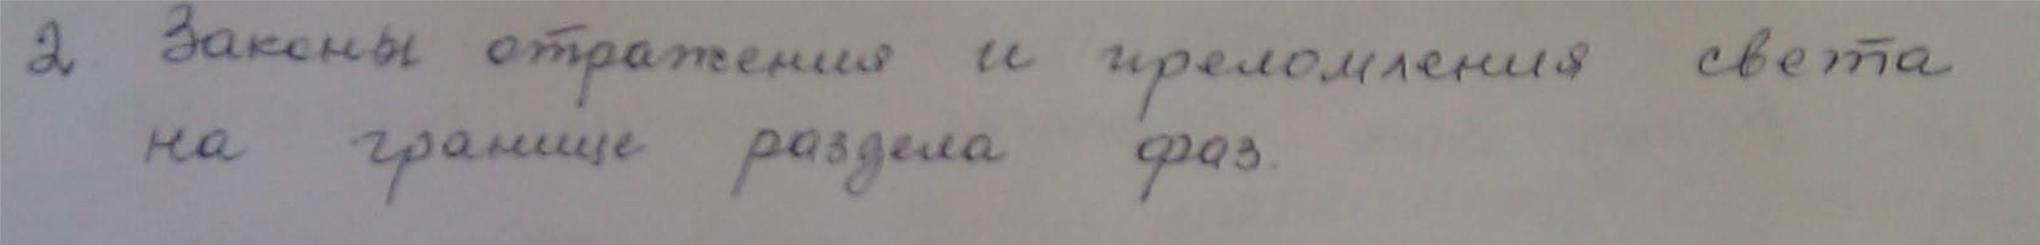 2. Законы отражения и преломления света
на границе раздела фаз.